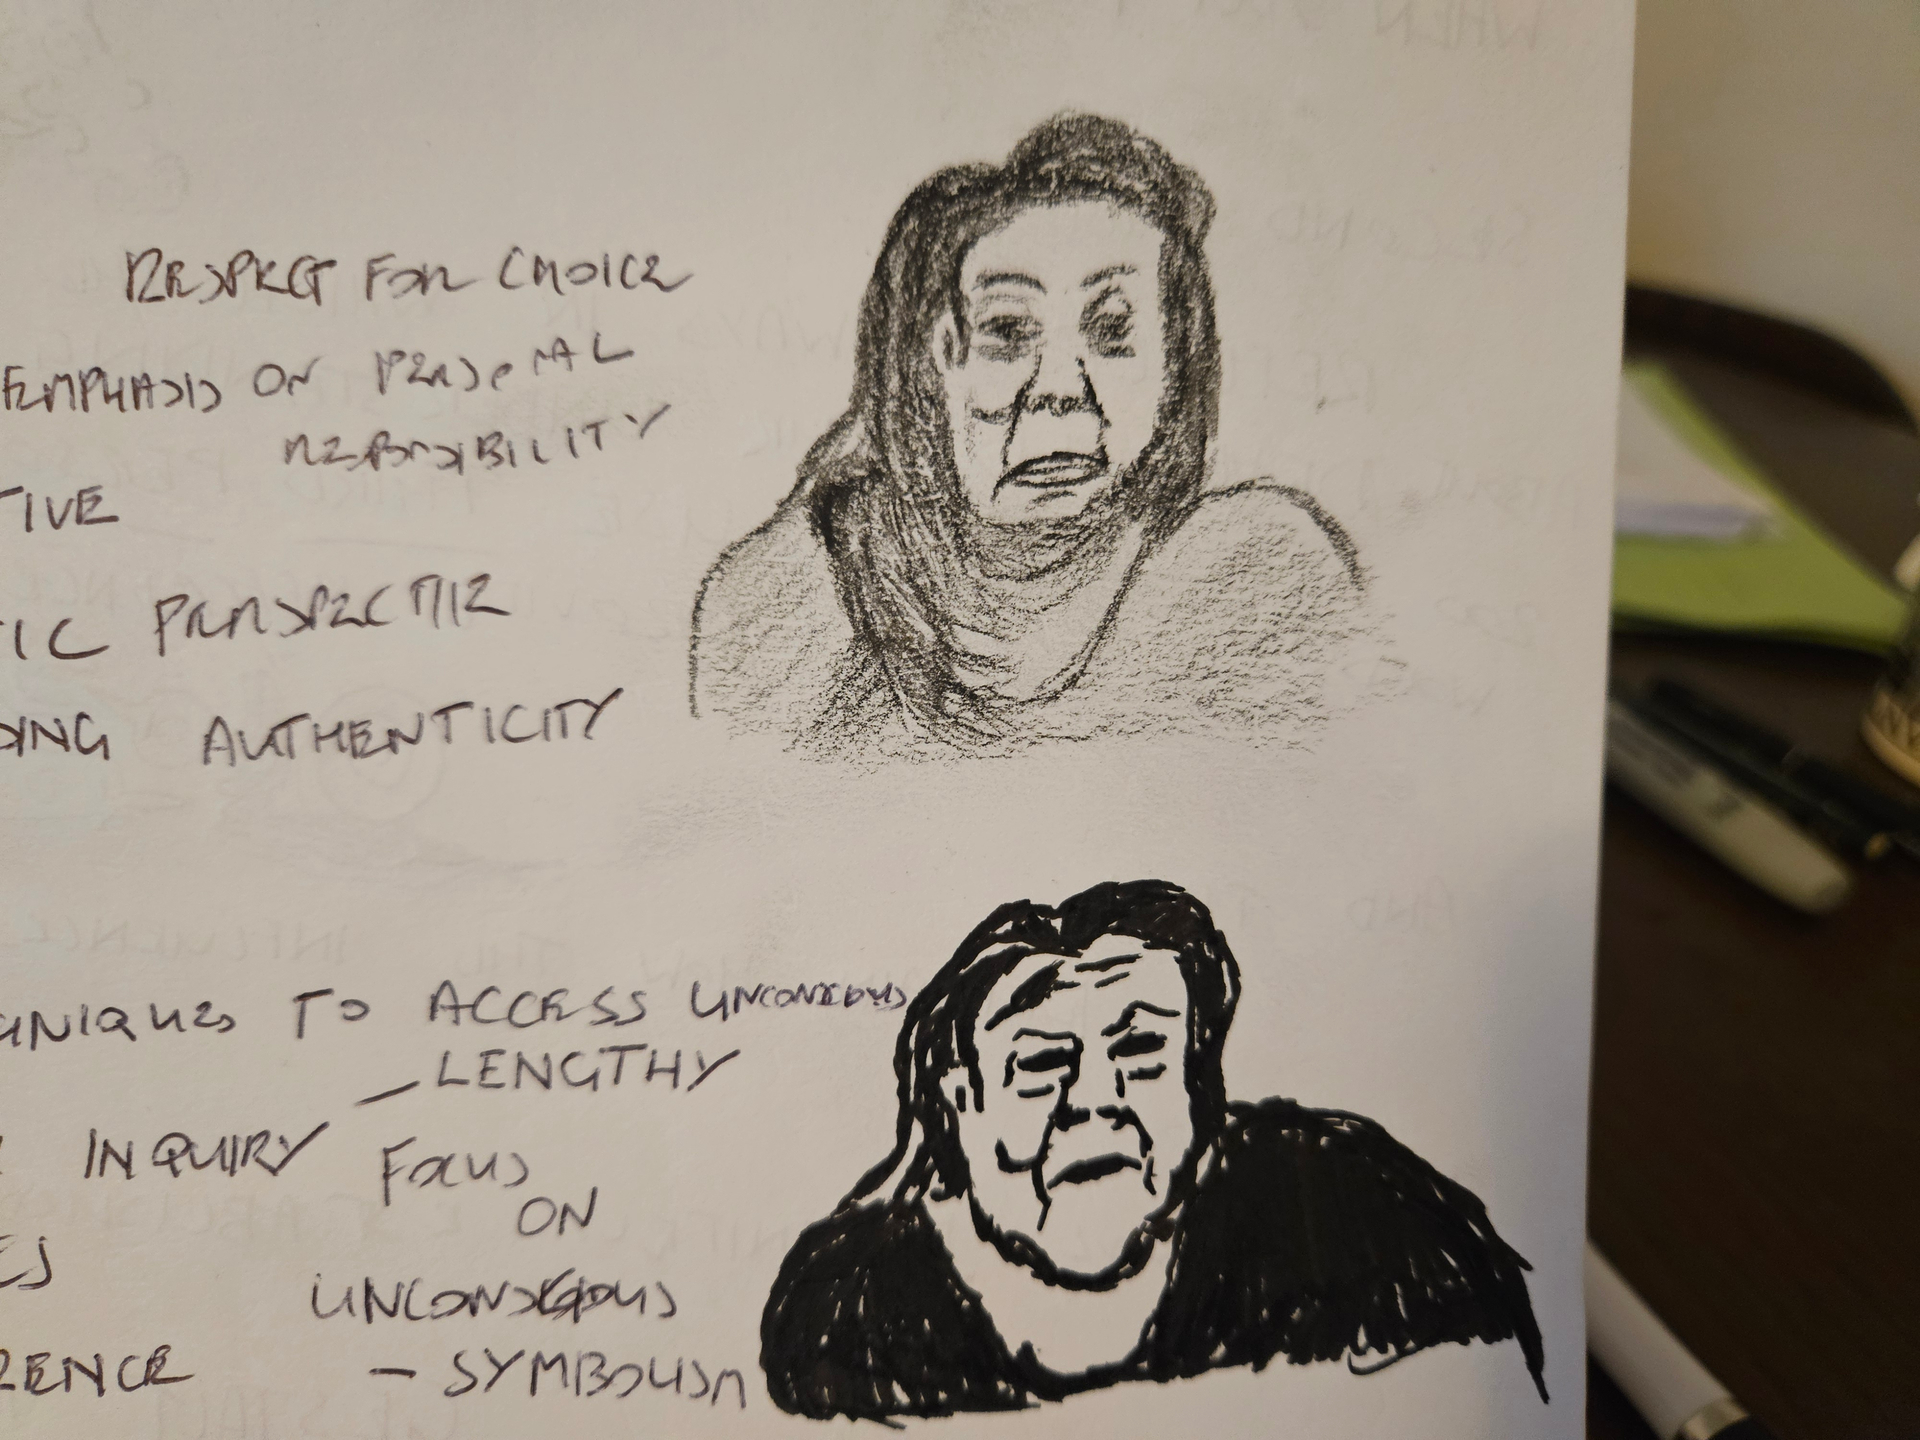 RESPECT FOR CHOICE
EMPHASIS ON PERSONAL
RESPONSIBILITY
TIVE
TIC PERSPECTIVE
DING AUTHENTICITY
HNIQUES TO ACCESS UNCONSCIOUS
– LENGTHY
INQUIRY FOCUS
ON
ES
UNCONSCIOUS
RENCE – SYMBOLISM